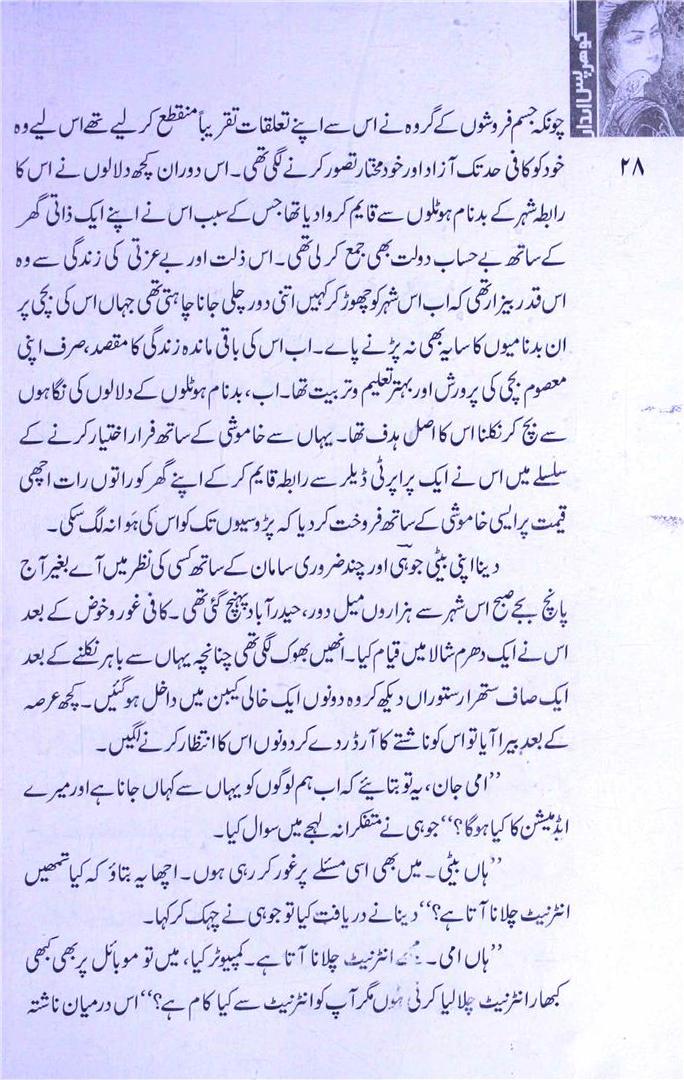 گوہر پس انداز
۲۸
چونکہ جسم فروشوں کے گروہ نے اس سے اپنے تعلقات تقریباً منقطع کر لیے تھے اس لیے وہ
خود کو کافی حد تک آزاد اور خود مختار تصور کرنے لگی تھی۔ اس دوران کچھ دلالوں نے اس کا
رابطہ شہر کے بدنام ہوٹلوں سے قایم کروا دیا تھا جس کے سبب اس نے اپنے ایک ذاتی گھر
کے ساتھ بے حساب دولت بھی جمع کر لی تھی۔ اس ذلت اور بے عزتی کی زندگی سے وہ
اس قدر بیزار تھی کہ اب اس شہر کو چھوڑ کر کہیں اتنی دور چلی جانا چاہتی تھی جہاں اس کی بچی پر
ان بدنامیوں کا سایہ بھی نہ پڑنے پاے۔ اب اس کی باقی ماندہ زندگی کا مقصد، صرف اپنی
معصوم بچی کی پرورش اور بہتر تعلیم و تربیت تھا۔ اب، بدنام ہوٹلوں کے دلالوں کی نگاہوں
سے بچ کر نکلنا اس کا اصل ہدف تھا۔ یہاں سے خاموشی کے ساتھ فرار اختیار کرنے کے
سلسلے میں اس نے ایک پراپرٹی ڈیلر سے رابطہ قایم کر کے اپنے گھر کو راتوں رات اچھی
قیمت پر ایسی خاموشی کے ساتھ فروخت کر دیا کہ پڑوسیوں تک کو اس کی ہوا نہ لگ سکی۔
دینا اپنی بیٹی جوہی اور چند ضروری سامان کے ساتھ کسی کی نظر میں آے بغیر آج
پانچ بجے صبح اس شہر سے ہزاروں میل دور، حیدرآباد پہنچ گئی تھی۔ کافی غور و خوض کے بعد
اس نے ایک دھرم شالا میں قیام کیا۔ انھیں بھوک لگی تھی چنانچہ یہاں سے باہر نکلنے کے بعد
ایک صاف ستھرا رستوراں دیکھ کر وہ دونوں ایک خالی کیبن میں داخل ہو گئیں۔ کچھ عرصہ
کے بعد بیرا آیا تو اس کو ناشتے کا آرڈر دے کر دونوں اس کا انتظار کرنے لگیں۔
’’امی جان، یہ تو بتایئے کہ اب ہم لوگوں کو یہاں سے کہاں جانا ہے اور میرے
ایڈمیشن کا کیا ہوگا؟‘‘ جوہی نے متفکرانہ لہجے میں سوال کیا۔
’’ہاں بیٹی۔ میں بھی اسی مسئلے پر غور کر رہی ہوں۔ اچھا یہ بتاؤ کہ کیا تمھیں
انٹرنیٹ چلانا آتا ہے؟‘‘ دینا نے دریافت کیا تو جوہی نے چہک کر کہا۔
’’ہاں امی۔ انٹرنیٹ چلانا آتا ہے۔ کمپیوٹر کیا، میں تو موبائل پر بھی کبھی
کبھار انٹرنیٹ چلا لیا کرتی ہوں مگر آپ کو انٹرنیٹ سے کیا کام ہے؟‘‘ اس درمیان ناشتہ